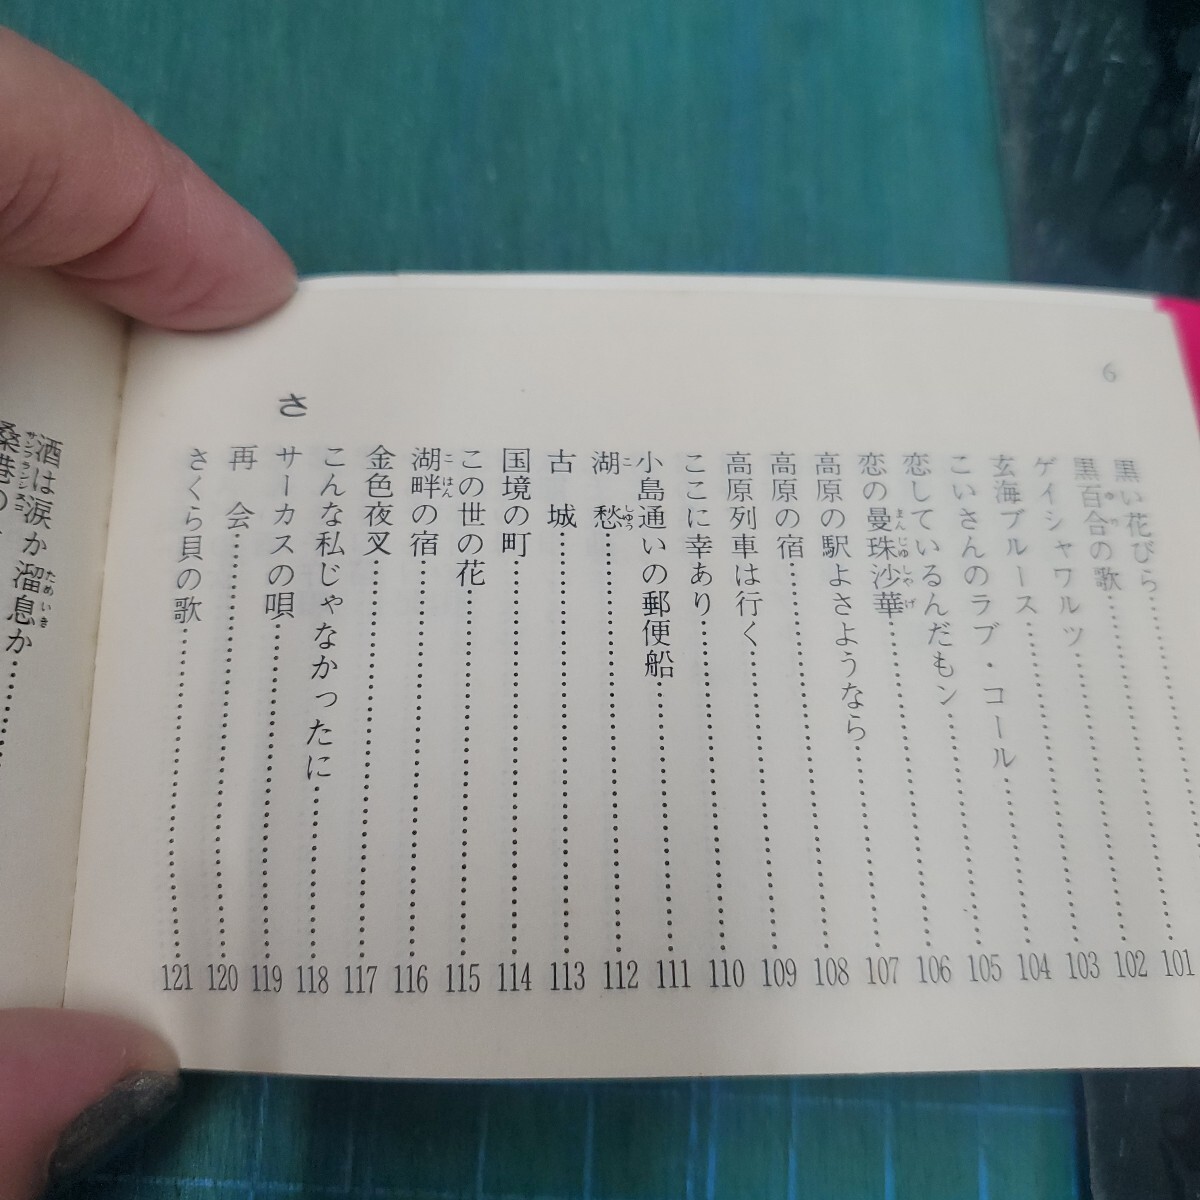 6
黒い花びら……………101
黒百合の歌……………102
ゲイシャワルツ……………103
玄海ブルース……………104
こいさんのラブ・コール……………105
恋しているんだもン……………106
恋の曼珠沙華……………107
高原の駅よさようなら……………108
高原の宿……………109
高原列車は行く……………110
ここに幸あり……………111
小島通いの郵便船……………112
湖愁……………113
古城……………114
国境の町……………115
この世の花……………116
湖畔の宿……………117
金色夜叉……………118
こんな私じゃなかったに……………119
さ
サーカスの唄……………120
再会……………121
さくら貝の歌……………
酒は涙か溜息か……………
桑港の